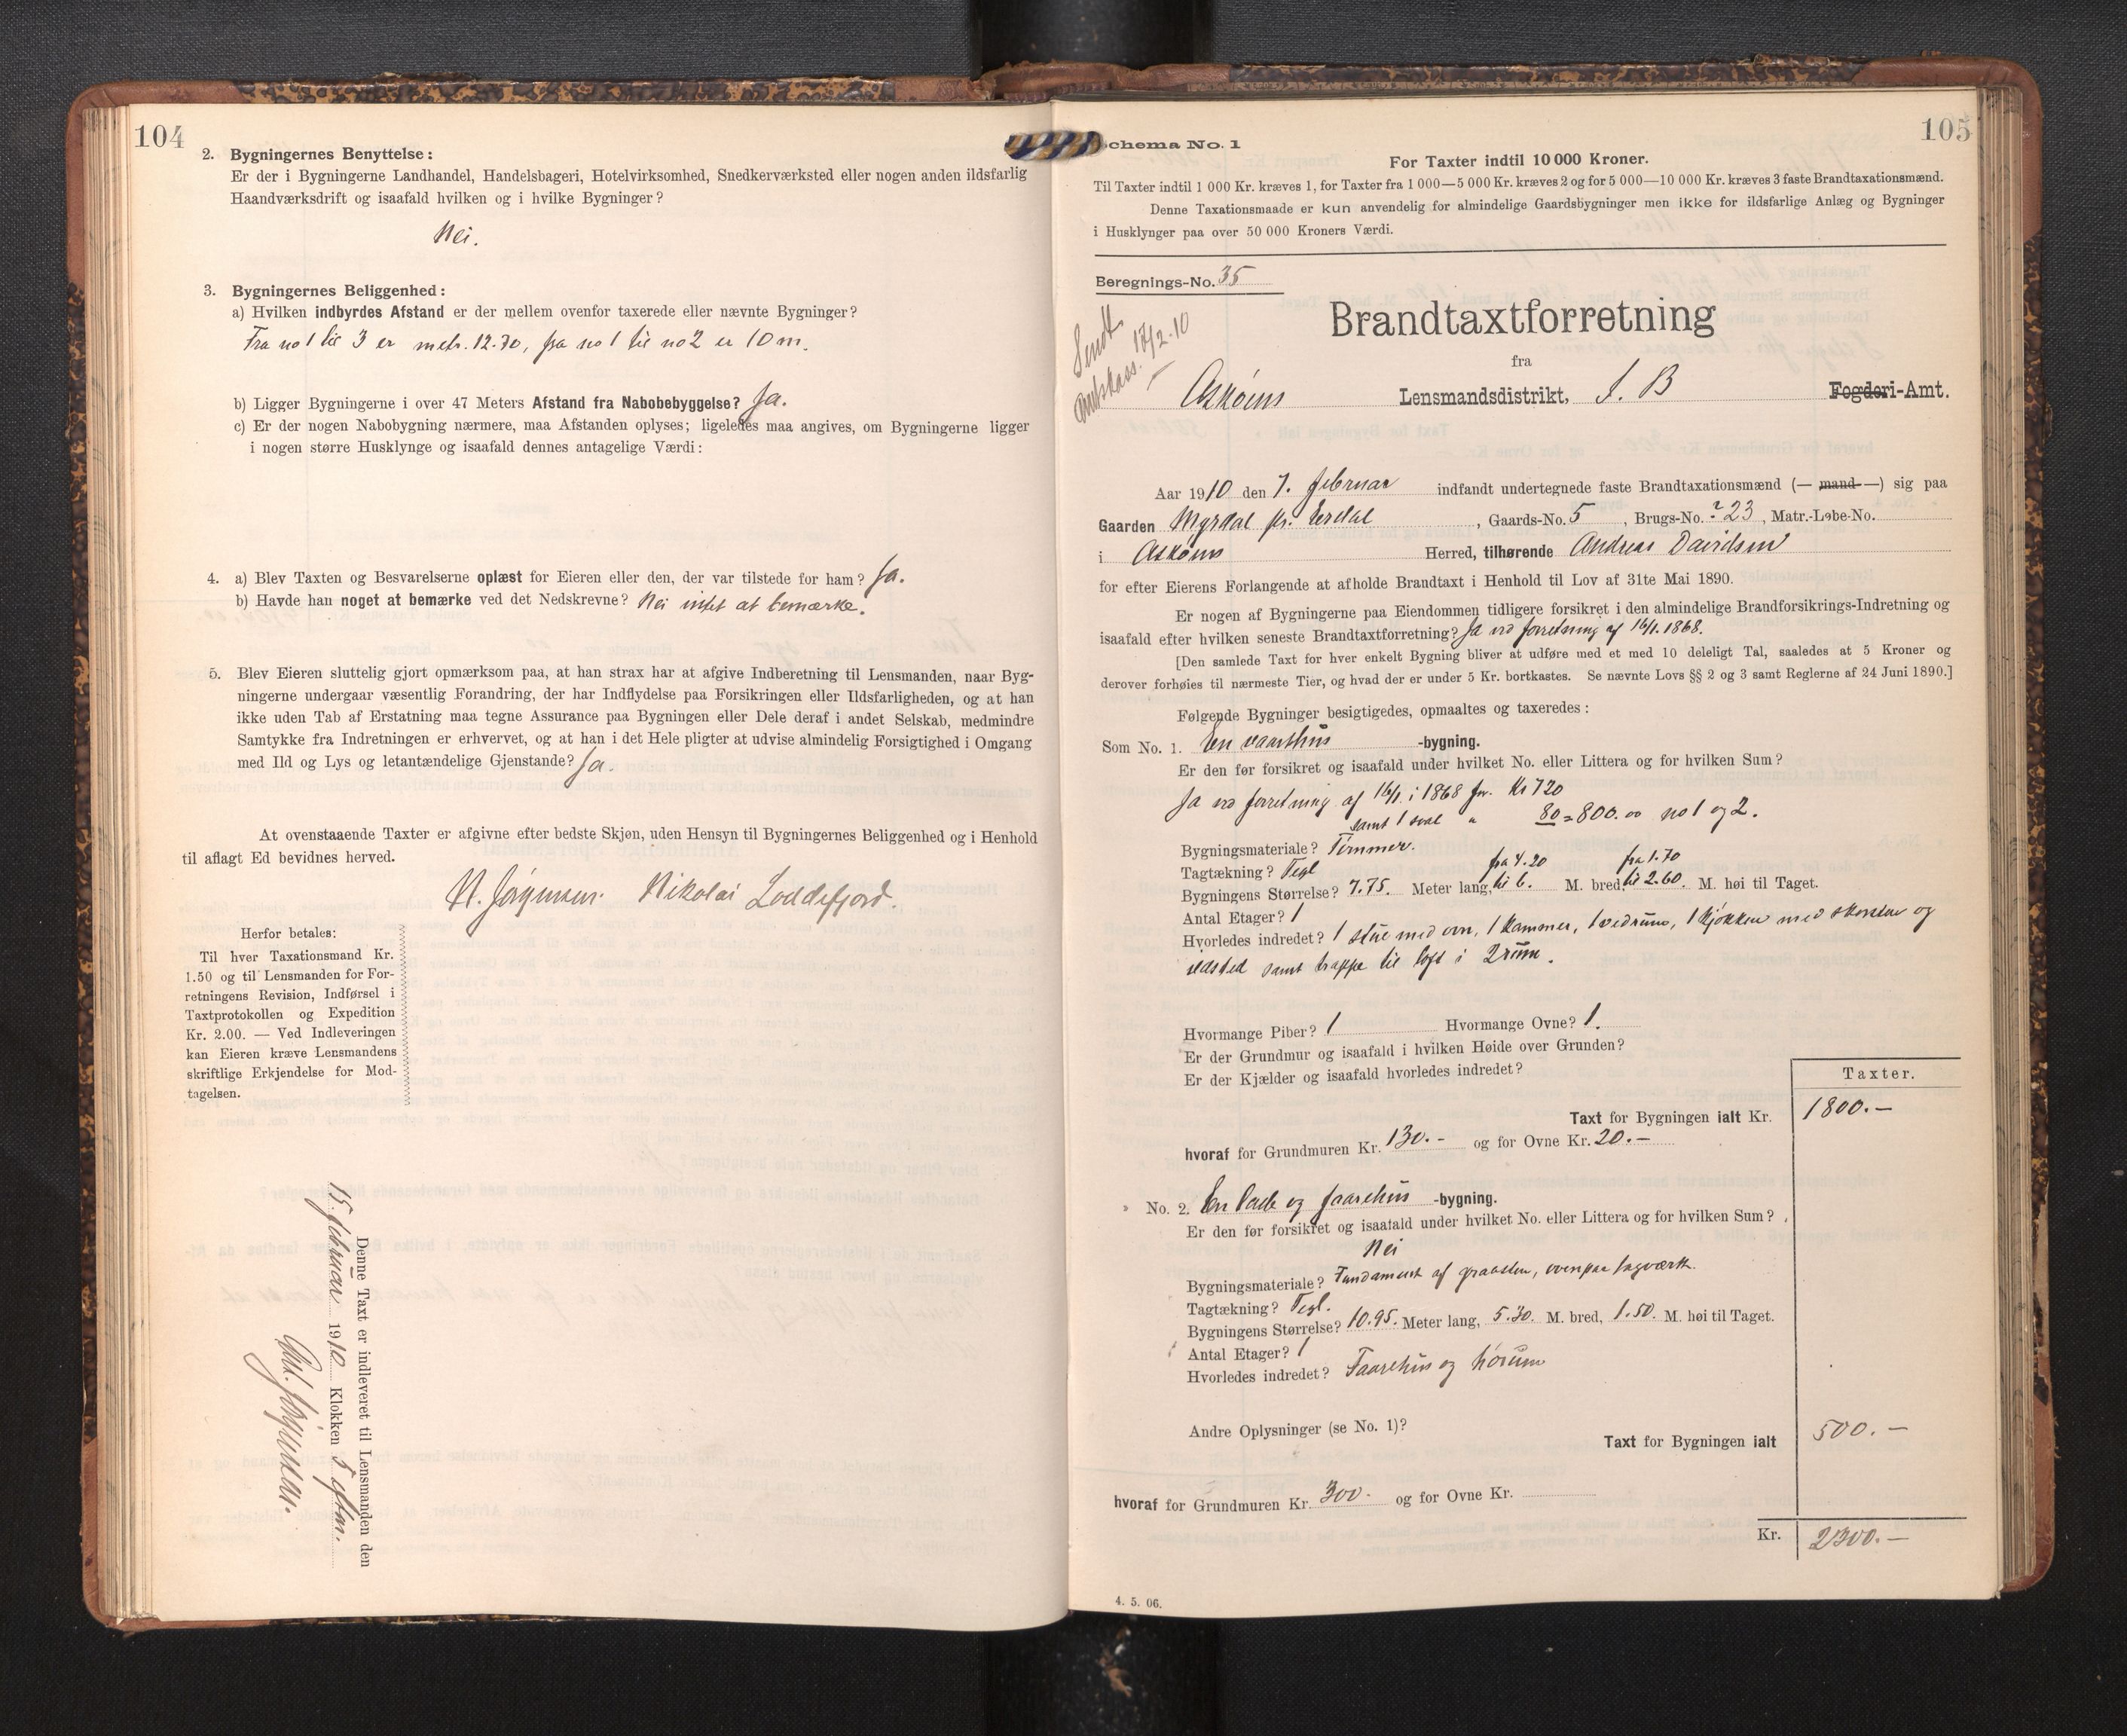 104
2. Bygningernes Benyttelse:
Er der i Bygningerne Landhandel, Handelsbageri, Hotelvirksomhed, Snedkerværksted eller nogen anden ildsfarlig
Haandværksdrift og isaafald hvilken og i hvilke Bygninger?
Nei.
3. Bygningernes Beliggenhed:
a) Hvilken indbyrdes Afstand er der mellem ovenfor taxerede eller nævnte Bygninger?
Fra no 1 til 3 er metr. 12.70, fra no 1 til no 2 er 10 m.
b) Ligger Bygningerne i over 47 Meters Afstand fra Nabobebyggelse? Ja.
c) Er der nogen Nabobygning nærmere, maa Afstanden oplyses; ligeledes maa angives, om Bygningerne ligger
i nogen større Husklynge og isaafald dennes antagelige Værdi:
4. a) Blev Taxten og Besvarelserne oplæst for Eieren eller den, der var tilstede for ham? Ja.
b) Havde han noget at bemærke ved det Nedskrevne? Nei intet at bemærke.
5. Blev Eieren sluttelig gjort opmærksom paa, at han strax har at afgive Indberetning til Lensmanden, naar Byg-
ningerne undergaar væsentlig Forandring, der har Indflydelse paa Forsikringen eller Ildsfarligheden, og at han
ikke uden Tab af Erstatning maa tegne Assurance paa Bygningen eller Dele deraf i andet Selskab, medmindre
Samtykke fra Indretningen er erhvervet, og at han i det Hele pligter at udvise almindelig Forsigtighed i Omgang
med Ild og Lys og letantændelige Gjenstande? Ja.
At ovenstaaende Taxter er afgivne efter bedste Skjøn, uden Hensyn til Bygningernes Beliggenhed og i Henhold
til aflagt Ed bevidnes herved.
N. Jørgensen. Nikolai Loddefjord.
Herfor betales:
Til hver Taxationsmand Kr.
1.50 og til Lensmanden for For-
retningens Revision, Indførsel i
Taxtprotokollen og Expedition
Kr. 2.00. — Ved Indleveringen
kan Eieren kræve Lensmandens
skriftlige Erkjendelse for Mod-
tagelsen.
Denne Taxt er indleveret til Lensmanden den
15. februar 1910 Klokken 5 efter.
Jørgensen.
105
Schema No. 1
For Taxter indtil 10 000 Kroner.
Til Taxter indtil 1 000 Kr. kræves 1, for Taxter fra 1 000—5 000 Kr. kræves 2 og for 5 000—10 000 Kr. kræves 3 faste Brandtaxationsmænd.
Denne Taxationsmaade er kun anvendelig for almindelige Gaardsbygninger men ikke for ildsfarlige Anlæg og Bygninger
i Husklynger paa over 50 000 Kroners Værdi.
Beregnings-No. 35
Sendt
Amtskass. 17/2-10
Brandtaxtforretning
fra
Askøens Lensmandsdistrikt, S. B Fogderi-Amt.
Aar 1910 den 7. februar indfandt undertegnede faste Brandtaxationsmænd (— mand —) sig paa
Gaarden Myrdal fr. Erdal, Gaards-No. 5, Brugs-No. ? 23, Matr.-Løbe-No.
i Askøens Herred, tilhørende Andreas Davidsen
for efter Eierens Forlangende at afholde Brandtaxt i Henhold til Lov af 31te Mai 1890.
Er nogen af Bygningerne paa Eiendommen tidligere forsikret i den almindelige Brandforsikrings-Indretning og
isaafald efter hvilken seneste Brandtaxtforretning? Ja ved forretning af 16/1. 1868.
[Den samlede Taxt for hver enkelt Bygning bliver at udføre med et med 10 deleligt Tal, saaledes at 5 Kroner og
derover forhøies til nærmeste Tier, og hvad der er under 5 Kr. bortkastes. Se nævnte Lovs §§ 2 og 3 samt Reglerne af 24 Juni 1890.]
Følgende Bygninger besigtigedes, opmaaltes og taxeredes:
Som No. 1. En vaanhus -bygning.
Er den før forsikret og isaafald under hvilket No. eller Littera og for hvilken Sum?
Ja ved forretning af 16/1. i 1868 for Kr 720
samt 1 sval " 80 = 800.00 no 1 og 2.
Bygningsmateriale? Tømmer.
Tagtækning? Tegl
Bygningens Størrelse? 7.75. Meter lang, fra 4.20 til 6. M. bred, fra 1.70 til 2.60. M. høi til Taget.
Antal Etager? 1
Hvorledes indredet? 1 stue med ovn, 1 kammer, 1 vedrum, 1 kjøkken med skorsten og
ildsted samt trappe til loft i 2 rum.
Hvormange Piber? 1 Hvormange Ovne? 1.
Er der Grundmur og isaafald i hvilken Høide over Grunden?
Er der Kjælder og isaafald hvorledes indredet?
Taxter.
Taxt for Bygningen ialt Kr. 1800.—
hvoraf for Grundmuren Kr. 130.- og for Ovne Kr. 20.—
No. 2. En lade og faarehus -bygning.
Er den før forsikret og isaafald under hvilket No. eller Littera og for hvilken Sum?
Nei
Bygningsmateriale? Fundament af graasten, ovenpaa bagværk.
Tagtækning? Tegl.
Bygningens Størrelse? 10.95. Meter lang, 5.30. M. bred, 1.50. M. høi til Taget.
Antal Etager? 1
Hvorledes indredet? Faarehus og hørum
Andre Oplysninger (se No. 1)?
Taxt for Bygningen ialt 500.—
hvoraf for Grundmuren Kr. 300.- og for Ovne Kr.
Kr. 2300.—
4. 5. 06.